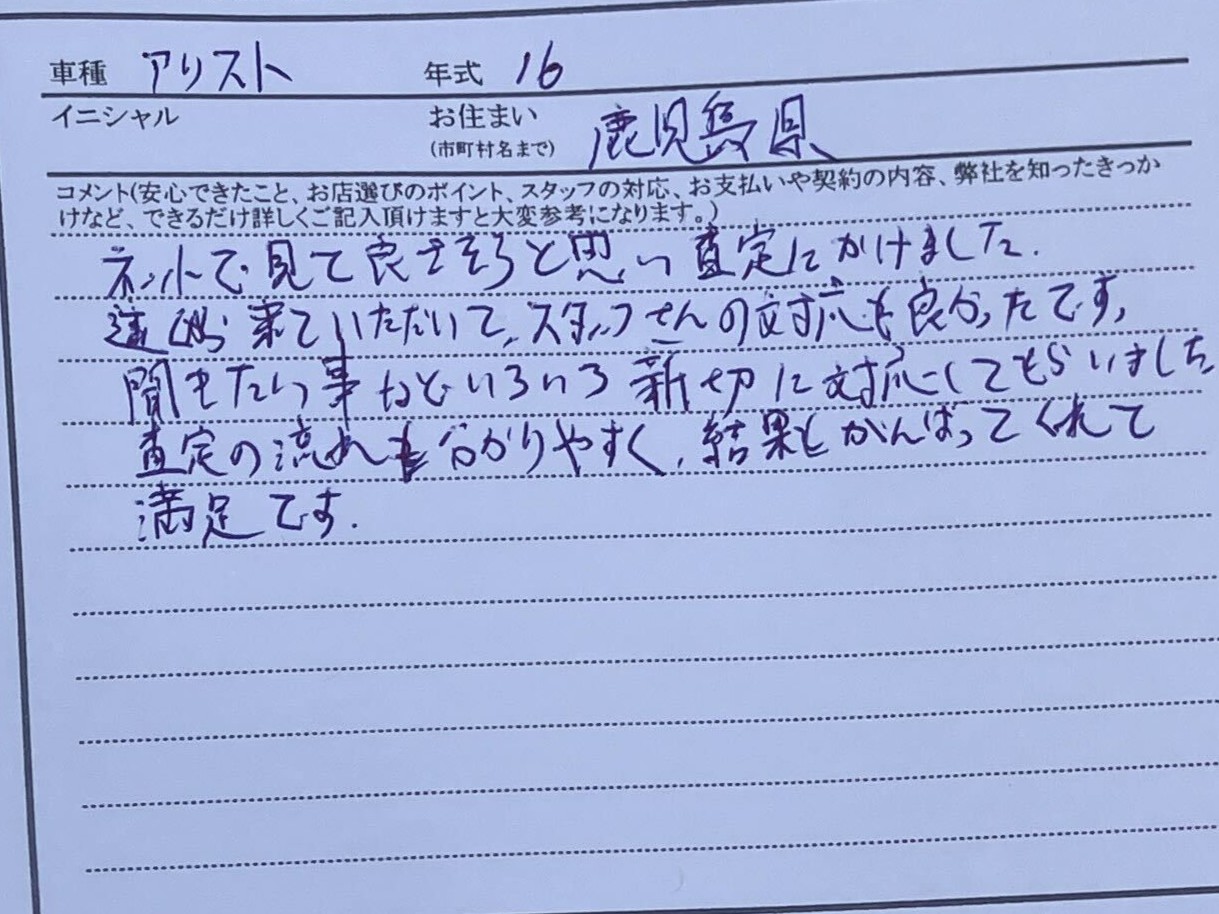 車種 アリスト 年式 16
イニシャル お住まい
(市町村名まで) 鹿児島県
コメント(安心できたこと、お店選びのポイント、スタッフの対応、お支払いや契約の内容、弊社を知ったきっか
けなど、できるだけ詳しくご記入頂けますと大変参考になります。)
ネットで見て良さそうと思い査定にかけました.
遠くから来ていただいて、スタッフさんの対応も良かったです。
聞きたい事などいろいろ新切に対応してもらいました
査定の流れも分かりやすく、結果もがんばってくれて
満足です.